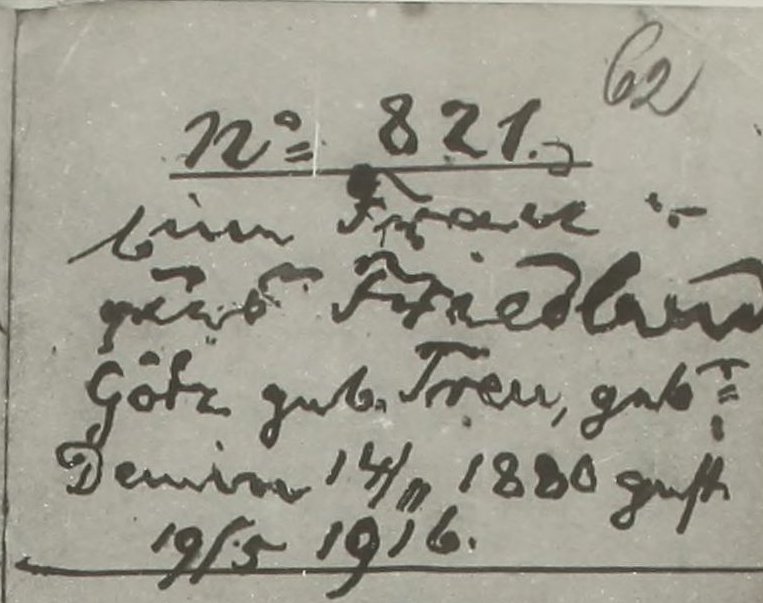 62
No 821.
Frau
Friedland
Götz geb. Treu, geb:
Demin 14/11 1880 gest.
19/5 1916.